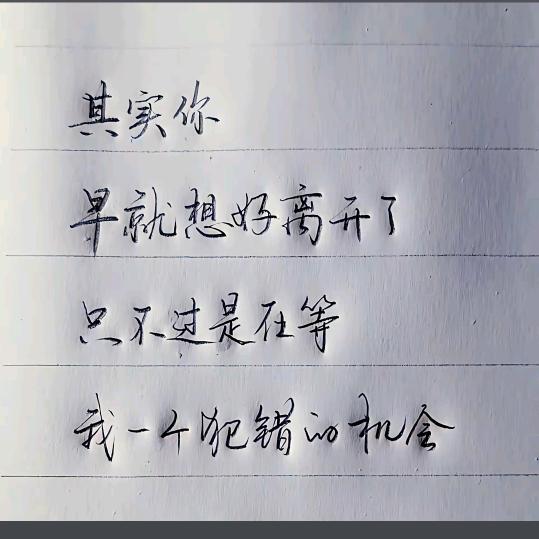 其实你
早就想好离开了
只不过是在等
我一个犯错的机会